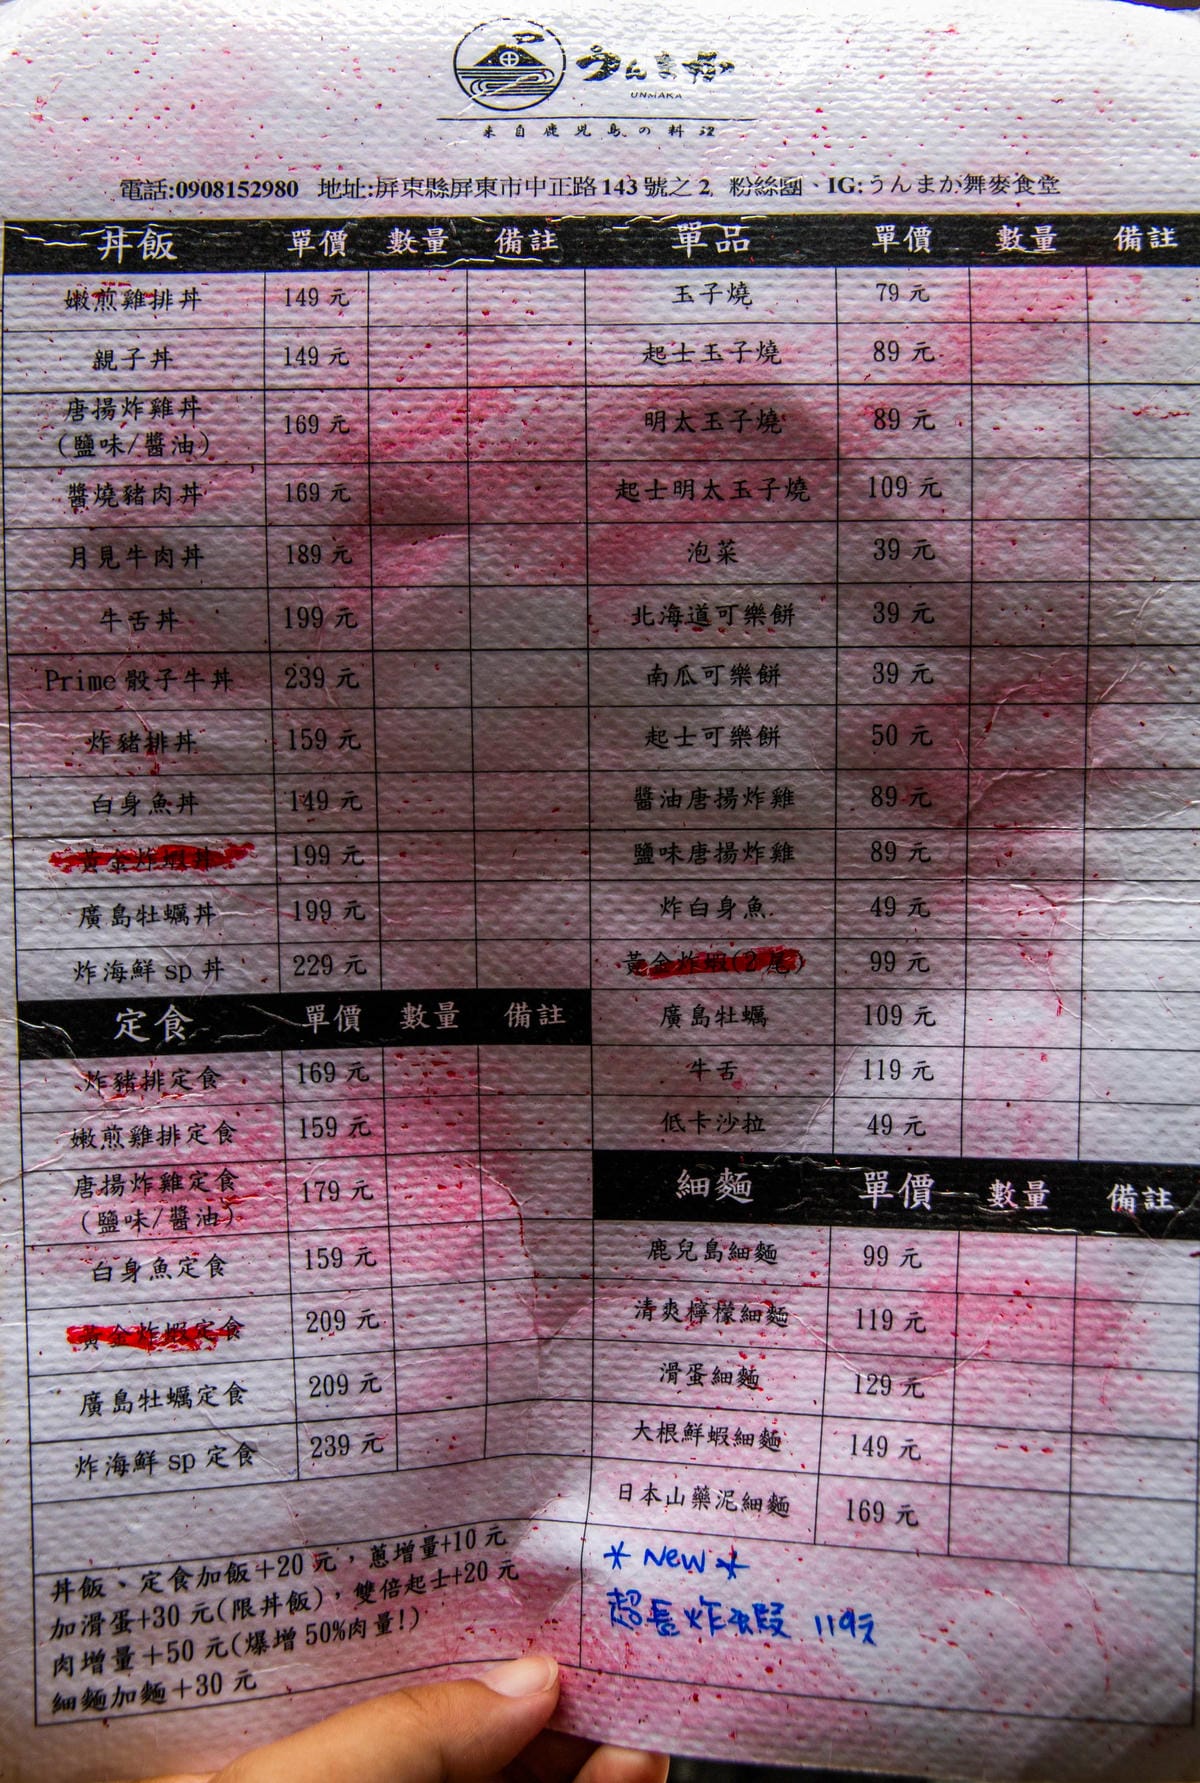 うんまか
UNMAKA
来自鹿児島の料理
電話:0908152980 地址:屏東縣屏東市中正路143號之2 粉絲團、IG:うんまか舞麥食堂
丼飯 單價 數量 備註
嫩煎雞排丼 149元
親子丼 149元
唐揚炸雞丼
(鹽味/醬油) 169元
醬燒豬肉丼 169元
月見牛肉丼 189元
牛舌丼 199元
Prime骰子牛丼 239元
炸豬排丼 159元
白身魚丼 149元
黃金炸蝦丼 199元
廣島牡蠣丼 199元
炸海鮮sp丼 229元
定食 單價 數量 備註
炸豬排定食 169元
嫩煎雞排定食 159元
唐揚炸雞定食
(鹽味/醬油) 179元
白身魚定食 159元
黃金炸蝦定食 209元
廣島牡蠣定食 209元
炸海鮮sp定食 239元
丼飯、定食加飯+20元，蔥增量+10元
加滑蛋+30元(限丼飯)，雙倍起士+20元
肉增量+50元(爆增50%肉量!)
細麵加麵+30元
單品 單價 數量 備註
玉子燒 79元
起士玉子燒 89元
明太玉子燒 89元
起士明太玉子燒 109元
泡菜 39元
北海道可樂餅 39元
南瓜可樂餅 39元
起士可樂餅 50元
醬油唐揚炸雞 89元
鹽味唐揚炸雞 89元
炸白身魚 49元
黃金炸蝦(2尾) 99元
廣島牡蠣 109元
牛舌 119元
低卡沙拉 49元
細麵 單價 數量 備註
鹿兒島細麵 99元
清爽檸檬細麵 119元
滑蛋細麵 129元
大根鮮蝦細麵 149元
日本山藥泥細麵 169元
*New*
超長炸蝦 119元